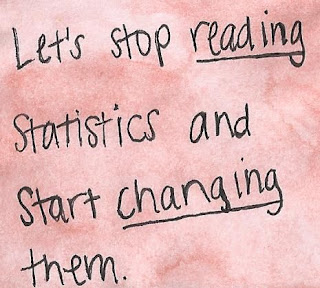 Let's stop reading
Statistics and
Start changing
them.